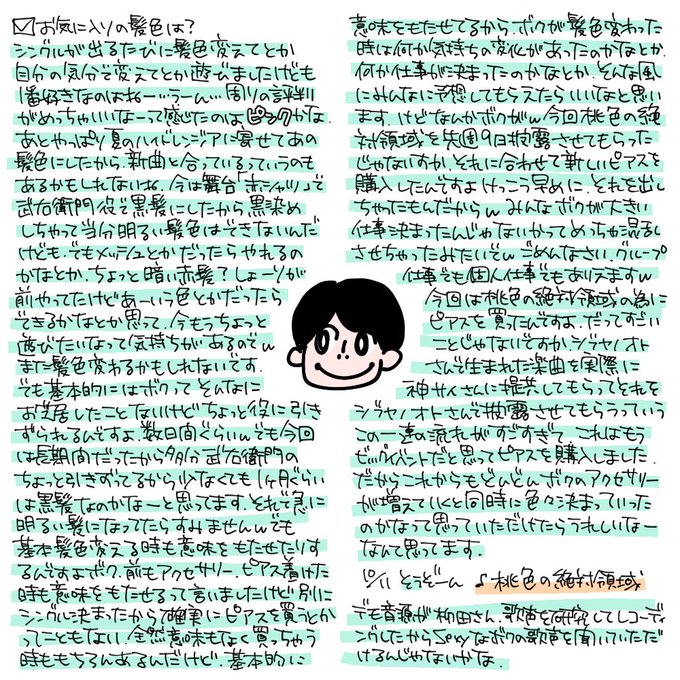 お気に入りの髪色は?
シングルが出るたびに髪色変えてとか
自分の気分で変えてとか遊びましたけども
1番好きなのはねー…うーん…周りの評判
がめっちゃいいなーって感じたのはピンクかな.
あとやっぱり夏のハイドレンジアに寄せてあの
髪色にしたから.新曲と合っているっていうのも
あるかもしれないね.今は舞台「赤シャツ」で
武右衛門役で黒髪にしたから黒染め
しちゃって当分明るい髪色はできないんだ
けども.でもメッシュとかだったらやれるの
かなとか.ちょっと暗い赤髪?しょーりが
前やってたけどあーいう色とかだったら
できるかなとか思って.今もうちょっと
遊びたいなって気持ちがあるのでw
また髪色変わるかもしれないです.
でも基本的にはボクってそんなに
お芝居したことないけどちょっと役に引き
ずられるんですよ.数日間ぐらいwでも今回
は長期間だったから多分武右衛門の
ちょっと引きずってるから少なくても1ヶ月ぐらい
は黒髪なのかなーと思ってます.それで急に
明るい髪になってたらすみませんwでも
基本髪色変える時も意味をもたせたりす
るんですよボク.前もアクセサリー.ピアス着けた
時も意味をもたせるって言いましたけど別に
シングル決まったから確実にピアスを買うとか
ってこともない.全然意味もなく買っちゃう
時ももちろんあるんだけど.基本的に
意味をもたせてるから.ボクが髪色変わった
時は何か気持ちの変化があったのかなとか.
何か仕事が決まったのかなとか.そんな風
にみんなに予想してもらえたらいいなと思い
ます.けどなんかボクがw今回桃色の絶
対領域を先週9日披露させてもらった
じゃないですか.それに合わせて新しいピアスを
購入したんですよけっこう早めに.それを出し
ちゃったもんだからwみんなボクが大きい
仕事決まったんじゃないかってめっちゃ混乱
させちゃったみたいでwごめんなさい.グループ
仕事でも個人仕事でもありえますw
今回は桃色の絶対領域の為に
ピアスを買ったんですよ.だってすごい
ことじゃないですか.ジャノオト
さんで生まれた楽曲を実際に
神サイさんに提供してもらってそれを
ジャノオトさんで披露させてもらうっていう
この一連の流れがすごすぎて.これはもう
ビッグイベントだと思ってピアスを購入しました.
だからこれからもどんどんボクのアクセサリー
が増えていくと同時に色々決まっていった
のかなって思っていただけたらうれしいなー
なんて思ってます.
10/11 そうぞーん ♪桃色の絶対領域
デモ音源が柳田さん.歌声を研究してレコーディ
ングしたからSexyなボクの歌声を聞いていただ
けるんじゃないかな.